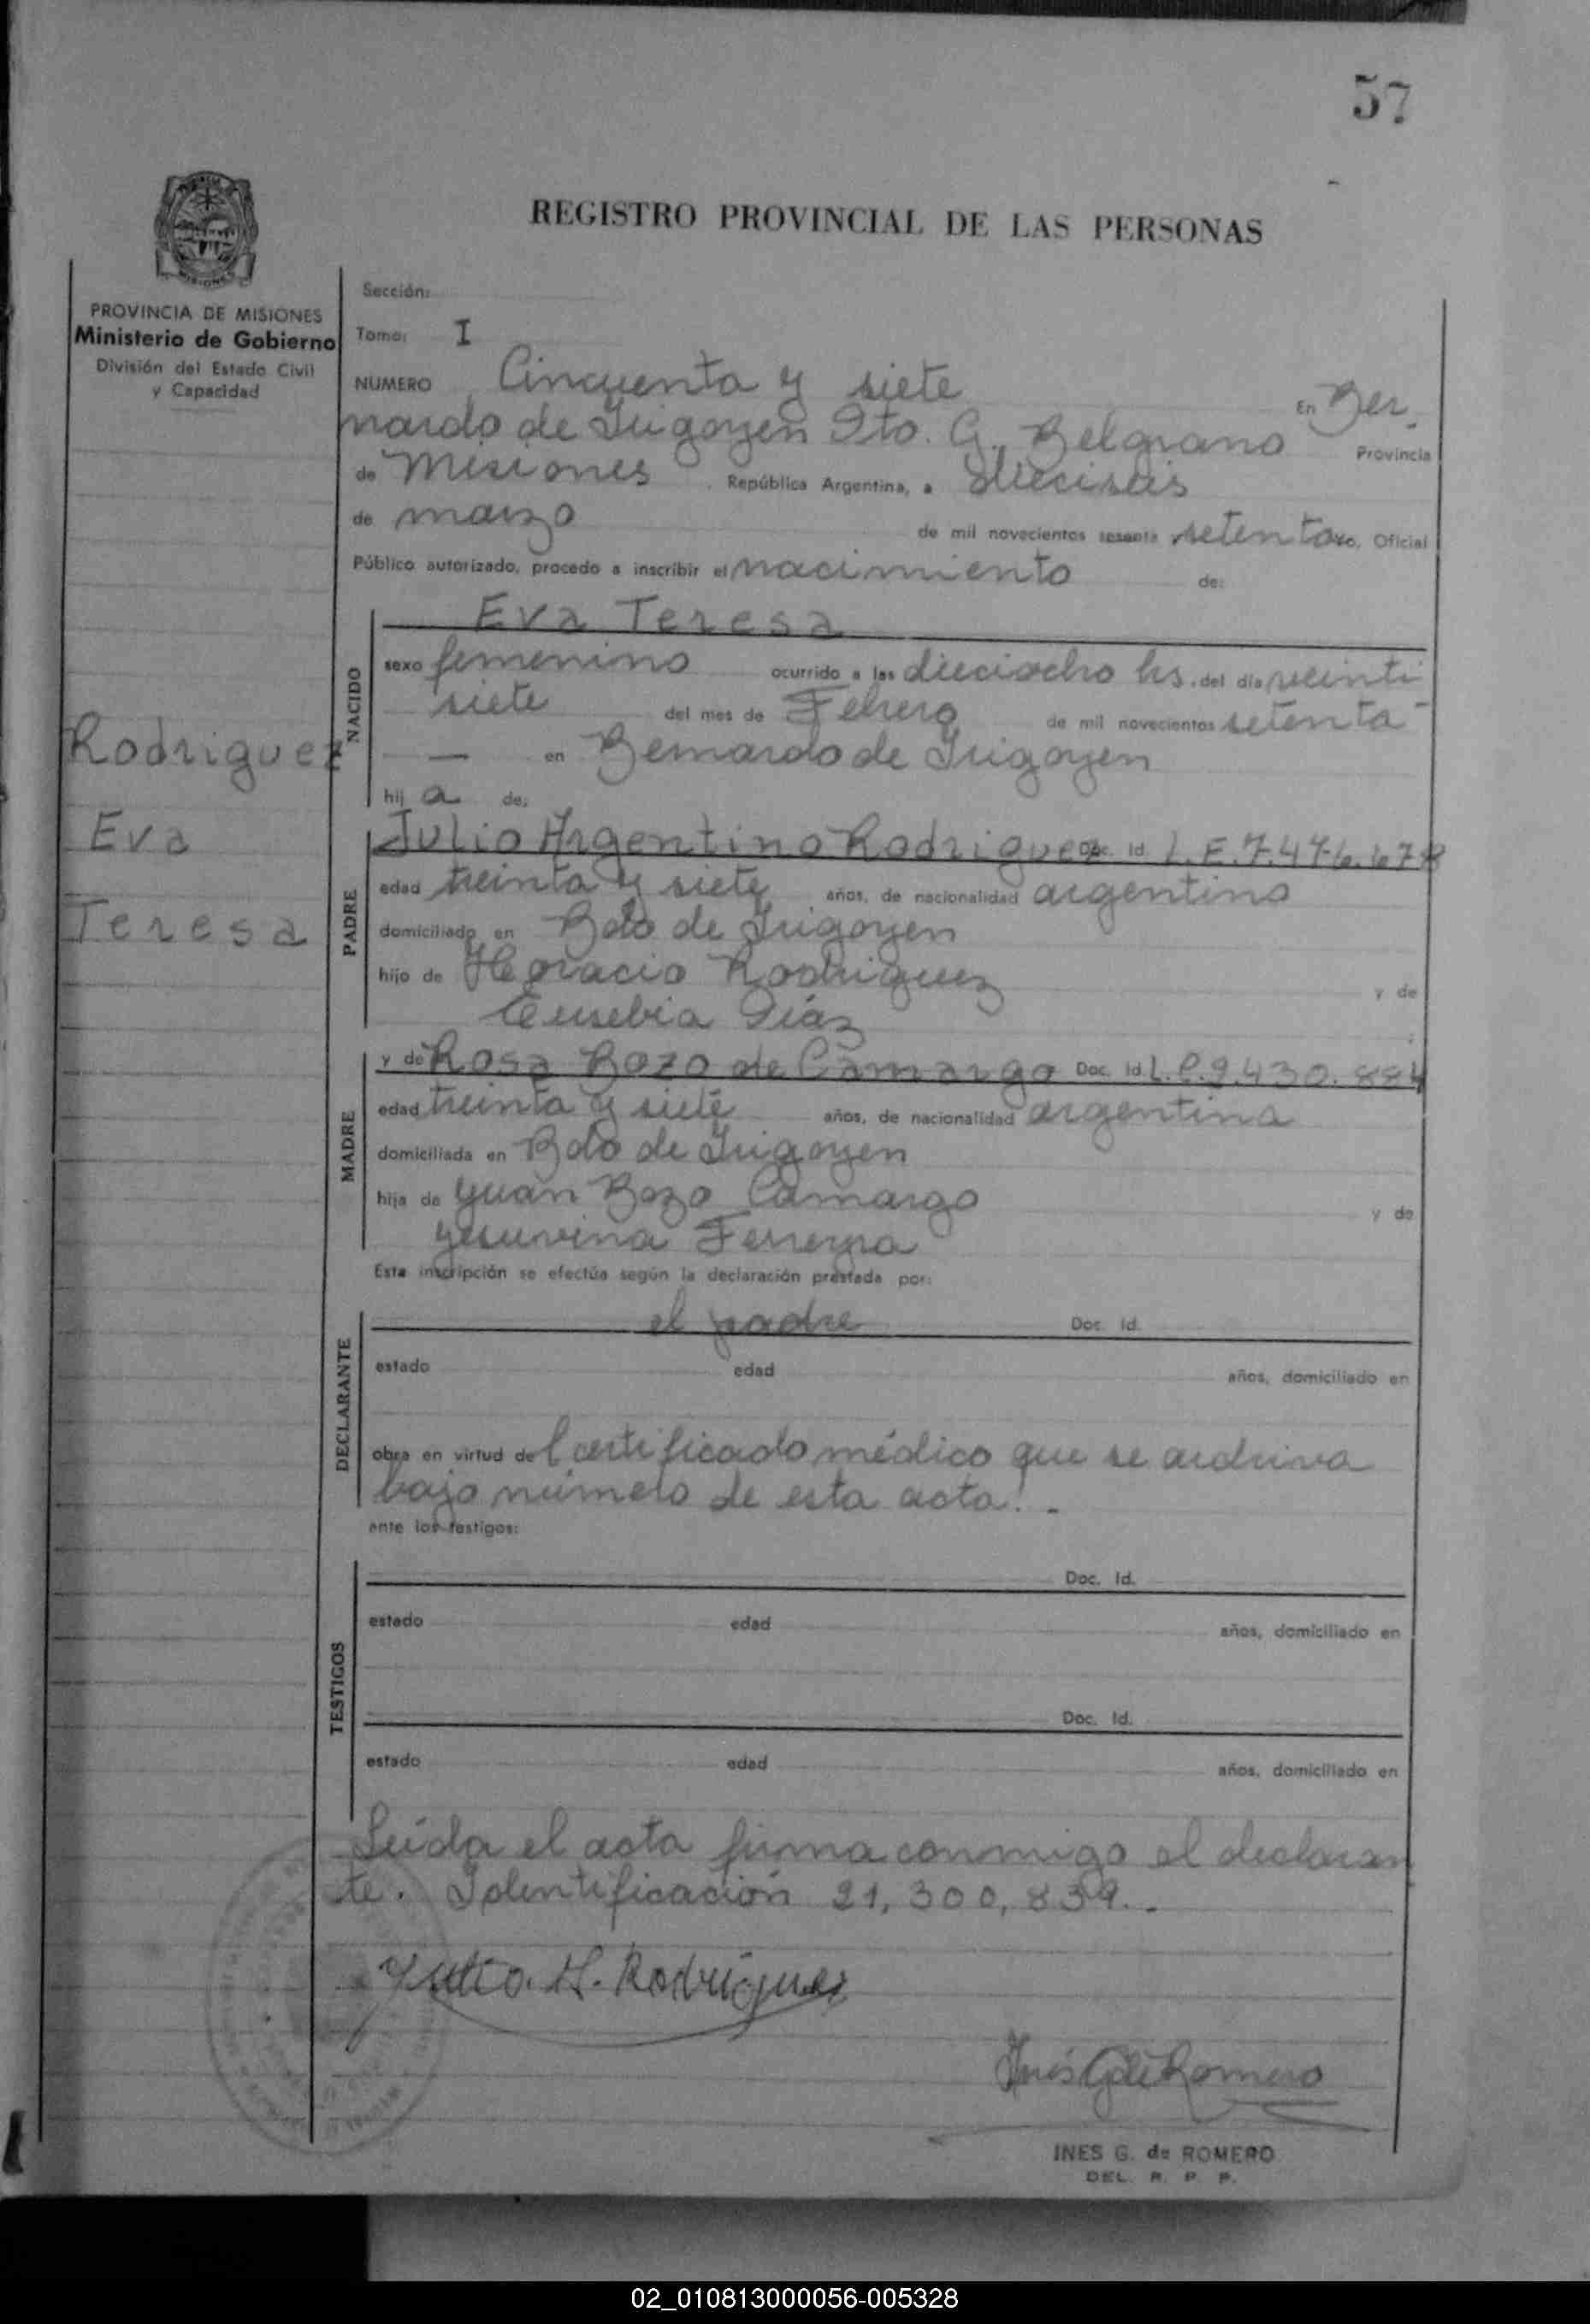 57
REGISTRO PROVINCIAL DE LAS PERSONAS
MISIONES
PROVINCIA DE MISIONES
Ministerio de Gobierno
División del Estado Civil
y Capacidad
Rodriguez
Eva
Teresa
Sección:
Tomo: I
NUMERO Cincuenta y siete En Ber
nardo de Irigoyen Dto. G. Belgrano Provincia
de Misiones República Argentina, a dieciseis
de marzo de mil novecientos sesenta setenta Oficial
Público autorizado, procedo a inscribir el nacimiento de:
NACIDO
Eva Teresa
sexo femenino ocurrido a las dieciocho hs. del día veinti
siete del mes de Febrero de mil novecientos setenta -
— en Bernardo de Irigoyen
hij a de:
PADRE
Julio Argentino Rodriguez Doc. Id. L.E.7.476.678
edad treinta y siete años, de nacionalidad argentino
domiciliado en Bdo de Irigoyen
hijo de Horacio Rodriguez y de
Eusebia Diáz
MADRE
y de Rosa Bozo de Camargo Doc. Id. L.C.9.430.884
edad treinta y siete años, de nacionalidad argentina
domiciliada en Bdo de Irigoyen
hija de Yuan Bozo Camargo y de
Yesuvina Ferreyra
Esta inscripción se efectúa según la declaración prestada por:
DECLARANTE
el padre Doc. Id.
estado edad años, domiciliado en
obra en virtud de l certificado médico que se archiva
bajo número de esta acta. -
ante los testigos:
TESTIGOS
Doc. Id.
estado edad años, domiciliado en
Doc. Id.
estado edad años, domiciliado en
Leída el acta firma conmigo el declaran
te. Identificación 21,300,839.-
Yulio. A. Rodriguez
Inés G de Romero
INES G. de ROMERO
DEL. R. P. P.
02_010813000056-005328